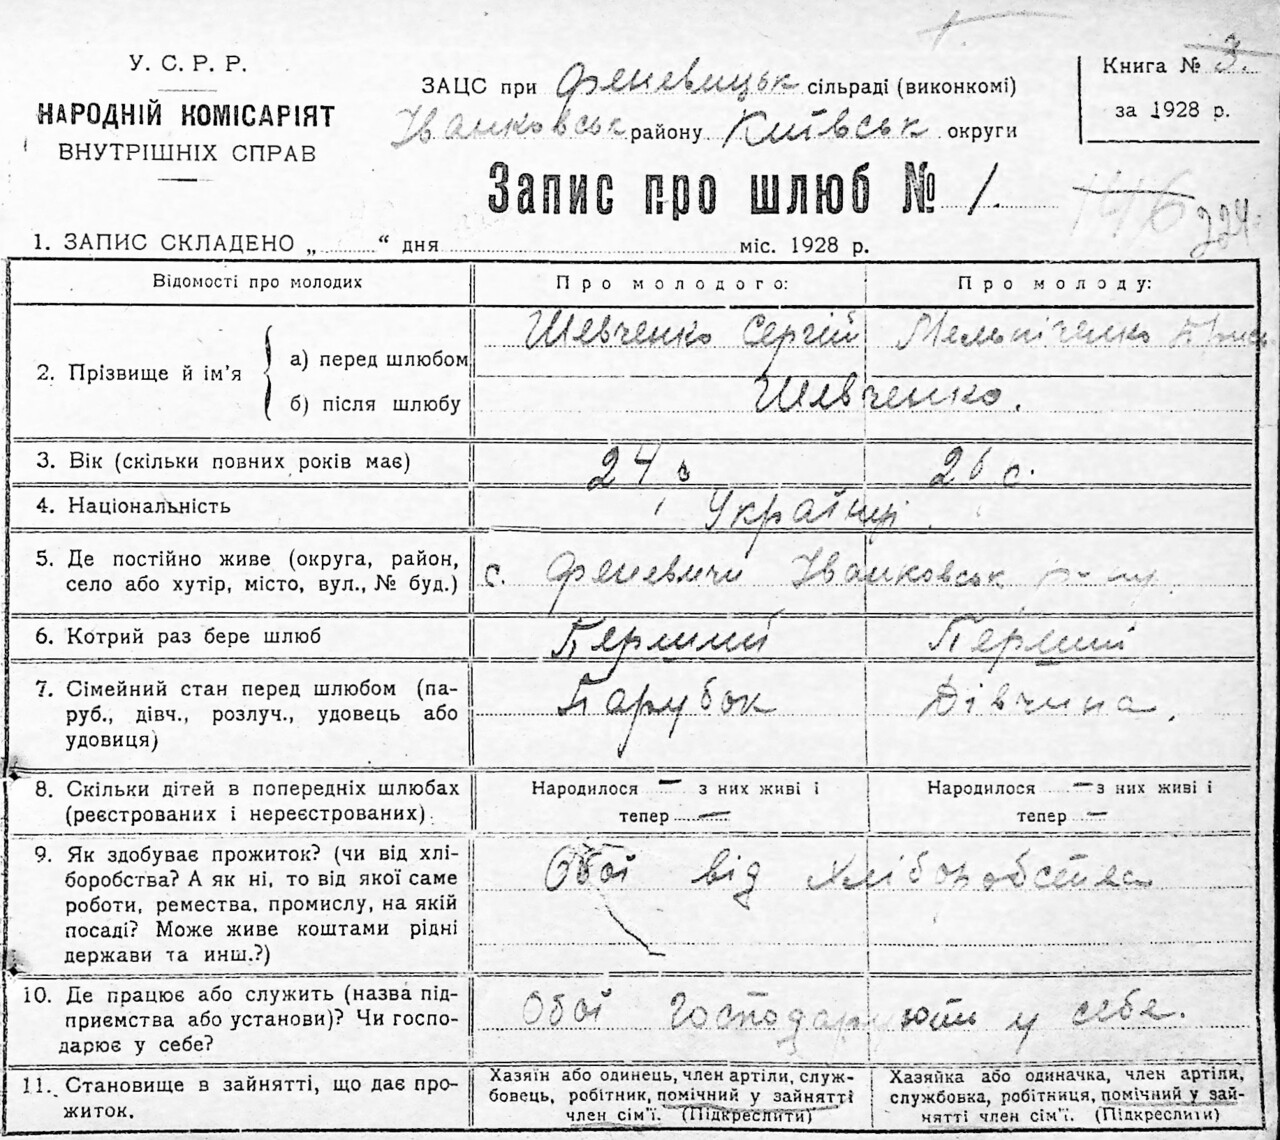 У. С. Р. Р.
НАРОДНІЙ КОМІСАРІЯТ
ВНУТРІШНІХ СПРАВ
ЗАЦС при Феневицьк сільраді (виконкомі)
Іванковськ району Київськ округи
Книга № 3.
за 1928 р.
Запис про шлюб № 1.
146 224
1. ЗАПИС СКЛАДЕНО „ “ дня міс. 1928 р.
Відомості про молодих
Про молодого:
Про молоду:
2. Прізвище й ім’я
а) перед шлюбом
Шевченко Сергій
Мельниченко
б) після шлюбу
Шевченко.
3. Вік (скільки повних років має)
24
26 с.
4. Національність
Українці
5. Де постійно живе (округа, район,
село або хутір, місто, вул., № буд.)
с. Феневичи Іванковськ р-ну.
6. Котрий раз бере шлюб
Перший
Перший
7. Сімейний стан перед шлюбом (па-
руб., дівч., розлуч., удовець або
удовиця)
Парубок
Дівчина.
8. Скільки дітей в попередніх шлюбах
(реєстрованих і нереєстрованих).
Народилося — з них живі і
тепер —
Народилося — з них живі і
тепер —
9. Як здобуває прожиток? (чи від хлі-
боробства? А як ні, то від якої саме
роботи, ремества, промислу, на якій
посаді? Може живе коштами рідні
держави та инш.?)
Обої від хліборобства
10. Де працює або служить (назва під-
приємства або установи)? Чи госпо-
дарює у себе?
Обої господарюють у себе.
11. Становище в зайнятті, що дає про-
житок.
Хазяїн або одинець, член артіли, служ-
бовець, робітник, помічний у зайнятті
член сім’ї. (Підкреслити)
Хазяйка або одиначка, член артіли,
службовка, робітниця, помічний у зай-
нятті член сім’ї. (Підкреслити)